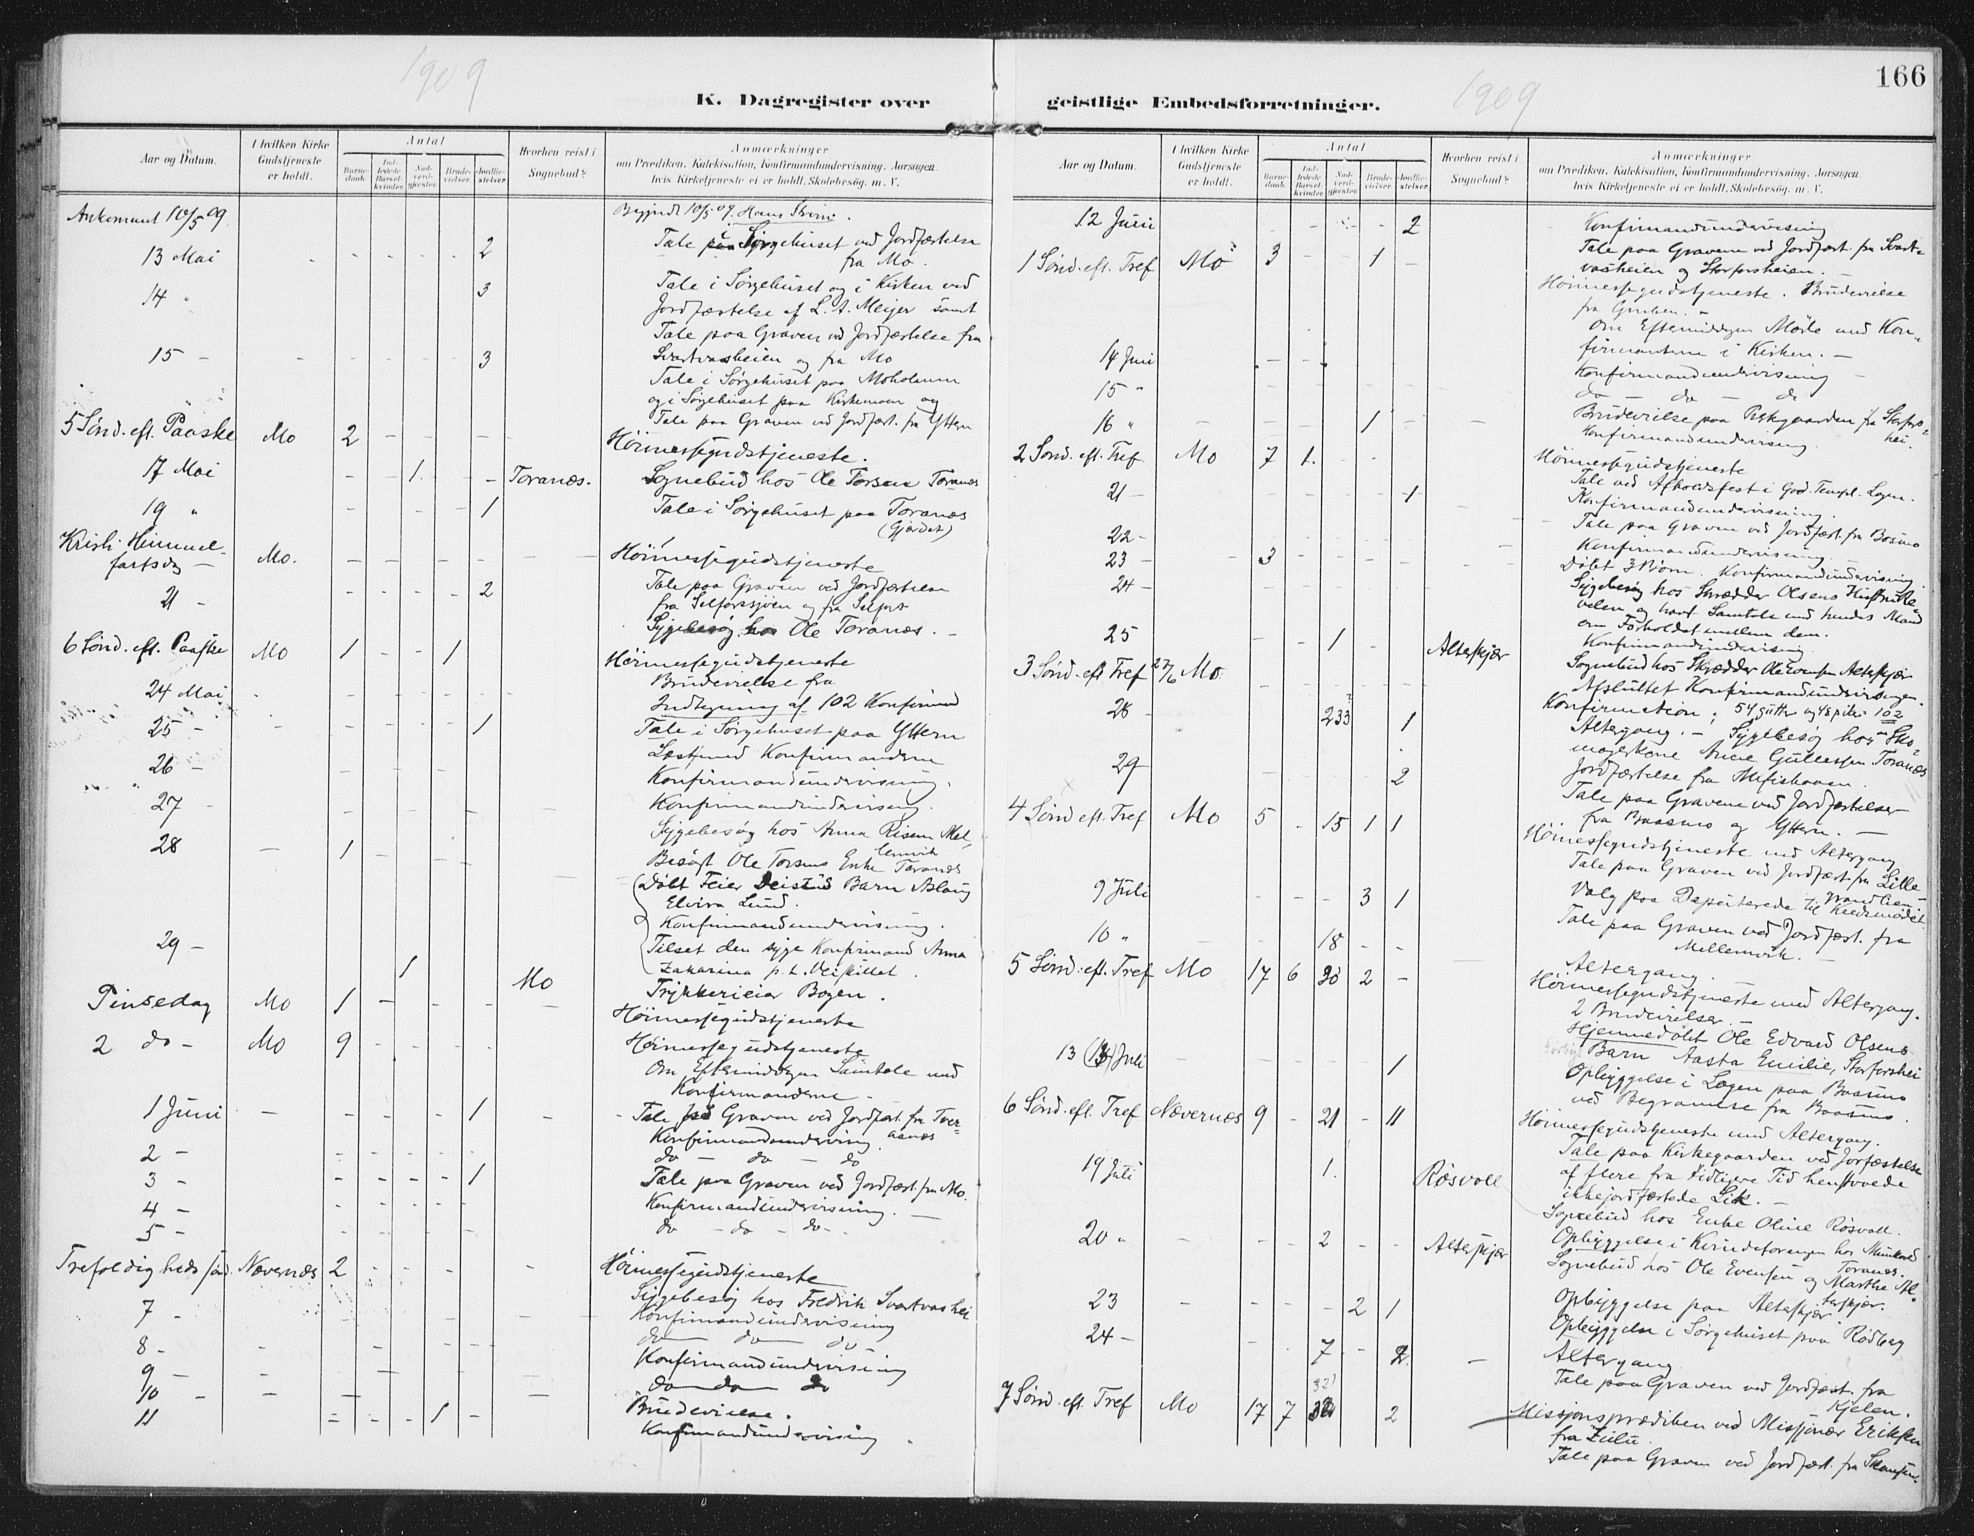 1909
K. Dagregister over
Aar og Datum.
I hvilken Kirke Gudstjeneste er holdt.
Antal
Barnedaab.
Indledede Barselkvinder.
Nadverdgjester.
Brudevielser.
Jordfæstelser.
Hvorhen reist i Sognebud?
Anmærkninger
om Prædiken, Katekisation, Konfirmandundervisning, Aarsagen, hvis Kirketjeneste ei er holdt, Skolebesøg m. V.
Ankommet 10/5 09
Begyndt 10/5 09. Hans
13 Mai - - - - 2 Tale i Sørgehuset ved Jordfæstelse
fra Mo.
14 " 3 Tale i Sørgehuset og i Kirken ved
Jordfæstelse af L. A. Meijer samt
Tale paa Graven ved Jordfæstelse fra
15 - - - - - - 3 Svartvasheien og fra Mo
Tale i Sørgehuset paa Moholmen
og i Sørgehuset paa Kirkemoen og
Tale paa Graven ved Jordfæst. fra Yttern
5 Sønd. eft. Paaske Mo 2 - - - - Høimessegudstjeneste.
17 Mai - - 1 - - Toranæs. Sognebud hos Ole Torsen Toranæs
19 " - - - - 1 Tale i Sørgehuset paa Toranæs
(Gjærdet)
Kristi Himmel-
fartsdag - Mo. - - - - - Høimessegudstjeneste
21 - - - - - 2 Tale paa Graven ved Jordfæstelse
fra Selforssjøen og fra Selfors
Sygebesøg hos Ole Toranæs. -
6 Sønd. eft. Paaske Mo 1 - - 1 Høimessegudstjeneste
Brudevielse fra
24 Mai Indtegning af 102 Konfirmand
25 - - - - - 1 Tale i Sørgehuset paa Yttern
Konfirmanderne
26 - Konfirmandundervisning.
27 - Konfirmandundervisning.
Sygebesøg hos Anna Risen Mel-
lemvik
28 - 1 - - - Besøgt Ole Torsens Enke Toranæs
Døbt Feier Barn Aslaug
Elvira Lund.
Konfirmandundervisning.
29 - 1 Mo Tilset den syge Konfirmand Anna
Zakarina p. t.
Bogen.
Pinsedag Mo 1 - - - - Høimessegudstjeneste
2 do - Mo 9 Høimessegudstjeneste
Om Eftermiddagen Samtale med
Konfirmanderne.
1 Juni - - - - - 1 - Tale paa Graven ved Jordfæst. fra Tver-
aanæs
Konfirmandundervisning
2 - - - - - - do - do - do
3 - - - - - 1 Tale paa Graven ved Jordfæst. fra Mo.
4 - Konfirmandundervisning. -
5 - do - do - do -
Trefoldigheds søn. Nævernæs 2 - - - - - Høimessegudstjeneste
Sygebesøg hos Fredrik Svartvashei
7 - Konfirmandundervisning
8 - do do do
9 - Konfirmandundervisning
10 - - do do do
11 - - - 1 - Brudevielse.
Konfirmandundervisning
1909
geistlige Embedsforretninger.
166
Aar og Datum.
I hvilken Kirke Gudstjeneste er holdt.
Antal
Barnedaab.
Indledede Barselkvinder.
Nadverdgjester.
Brudevielser.
Jordfæstelser.
Hvorhen reist i Sognebud?
Anmærkninger
om Prædiken, Katekisation, Konfirmandundervisning, Aarsagen, hvis Kirketjeneste ei er holdt, Skolebesøg m. V.
12 Juni - - - - 2 Konfirmandundervisning
Tale paa Gravene ved Jordfæst. fra Svart-
vasheien og Storforsheien. -
1 Sønd. eft. Tref Mo 3 - - 1 - Høimessegudstjeneste. Brudevielse
fra Gruben. -
Om Eftermiddagen Møde med Kon-
firmanterne i Kirken. -
14 Juni - - Konfirmandundervisning -
15 " do - do - do
16 " 1 Brudevielse paa Prestgaarden fra Storfors-
hei.
Konfirmandundervisning.
2 Sønd. eft. Tref Mo 7 1. - - - Høimessegudstjeneste
Tale ved Afholdsfest i God. Templ. Logen.
21 - - - - - 1 Konfirmandundervisning.
Tale paa Graven ved Jordfæst. fra Bosmo
22 - Konfirmandundervisning.
23 - 3 Døbt 3 Børn. Konfirmandundervisning.
24 - Sygebesøg hos Skrædder Olsens
og havt Samtale med hendes Mand
om Forholdet mellem dem.
Konfirmandundervisning
25 - - 1 - Alterskjær Sognebud hos Skrædder Ole Evensen Alterskjær
Afsluttet Konfirmandundervisningen
3 Sønd. eft Tref 27/6 Mo. Konfirmation; 54 gutter og 48 piker 102
28 - 233 - 1 Altergang. - Sygebesøg hos Sko-
magerkone Anne Gullesen Toranæs
Jordfæstelse fra
29 - - - - 2 Tale paa Gravene ved Jordfæstelser
fra Baasmo og Yttern. -
4 Sønd. eft. Tref Mo 5 - 15 1 1 Høimessegudstjeneste med Altergang
Tale paa Graven ved Jordfæst. fra Lille
9 Juli - - - 3 1 Valg paa Deputerede til Kredsmødet
Tale paa Graven ved Jordfæst. fra
Mellemvik.
10 " 18 - - Altergang.
5 Sønd. eft. Tref Mo 17 6 30 2 - Høimessegudstjeneste med Altergang.
2 Brudevielser.
Hjemmedøbt Ole Edvard Olsens
Barn Aasta Emilie, Storforshei
13 (13) Juli - - - - 1 Opbyggelse i Logen paa Baasmo
ved Begravelse fra Baasmo.
6 Sønd. eft. Tref Nævernæs 9 - 21 - 11 Høimessegudstjeneste med Altergang.
Tale paa Kirkegaarden ved Jorfæstelse
af flere fra Tidligere Tid hensovede
ikkejordfæstede Lik. -
19 Juli 1. Røsvoll Sognebud hos Enke Oline Røsvoll.
Opbyggelse i Kvindeforeningen hos
Toranæs.
20 " - - 2 - - Alterskjær Sognebud hos Ole Evensen og Marthe Al-
terskjær.
Opbyggelse paa Alterskjær
23 - - - - 2 1 Opbyggelse i Sørgehuset paa Rødberg
24 - - - 7 - 2 - Altergang.
Tale paa Graven ved Jordfæst. fra
Kjelen.
32
7 Sønd. eft. Tref Mo 17 7 2 Missjonsprædiken ved Missjonær Eriksen
fra Zulu.
Tale paa Graven ved Jordfæst. fra